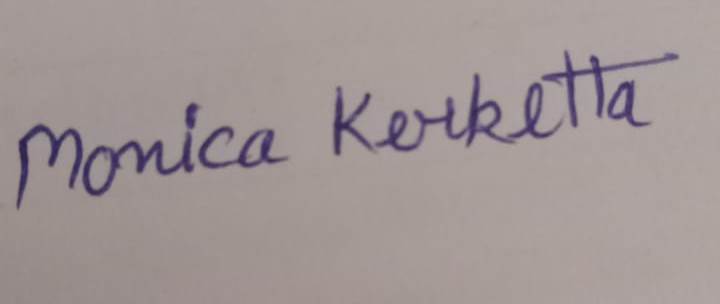 Monica Kerketta